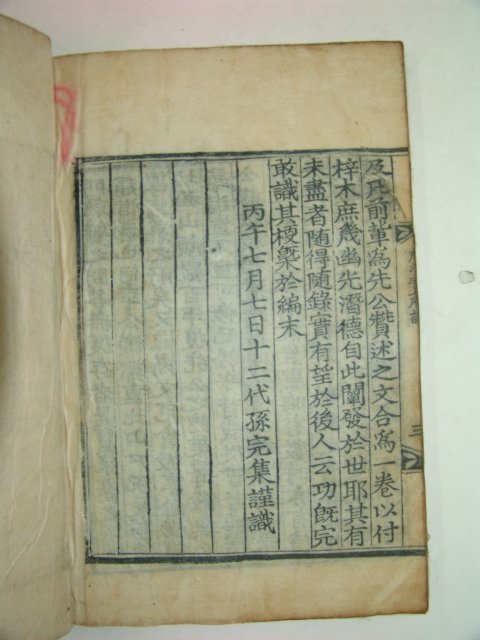 及氏前輩爲先公贊述之文合爲一卷以付
梓木庶幾幽光潛德自此闡發於世耶其有
未盡者隨得隨錄實有望於後人云功旣完
敢識其梗槩於編末
丙午七月七日十二代孫完集謹識
三